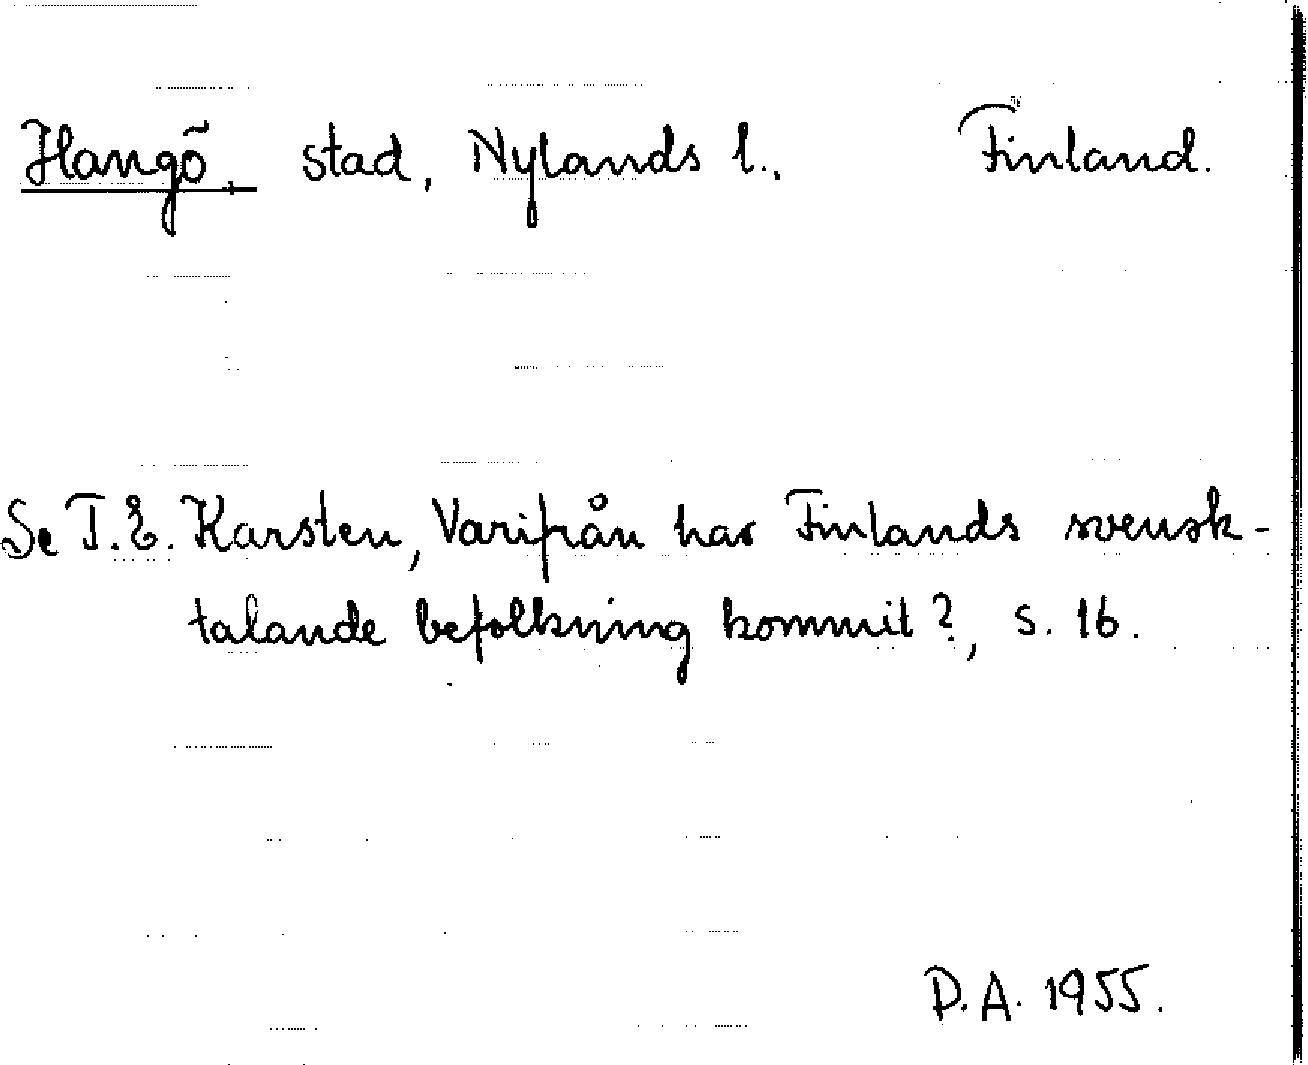 Hangö, stad, Nylands l., Finland.
Se T.E. Karsten, Varifrån har Finlands svensk-
talande befolkning kommit?, s. 16.
D.A. 1955.